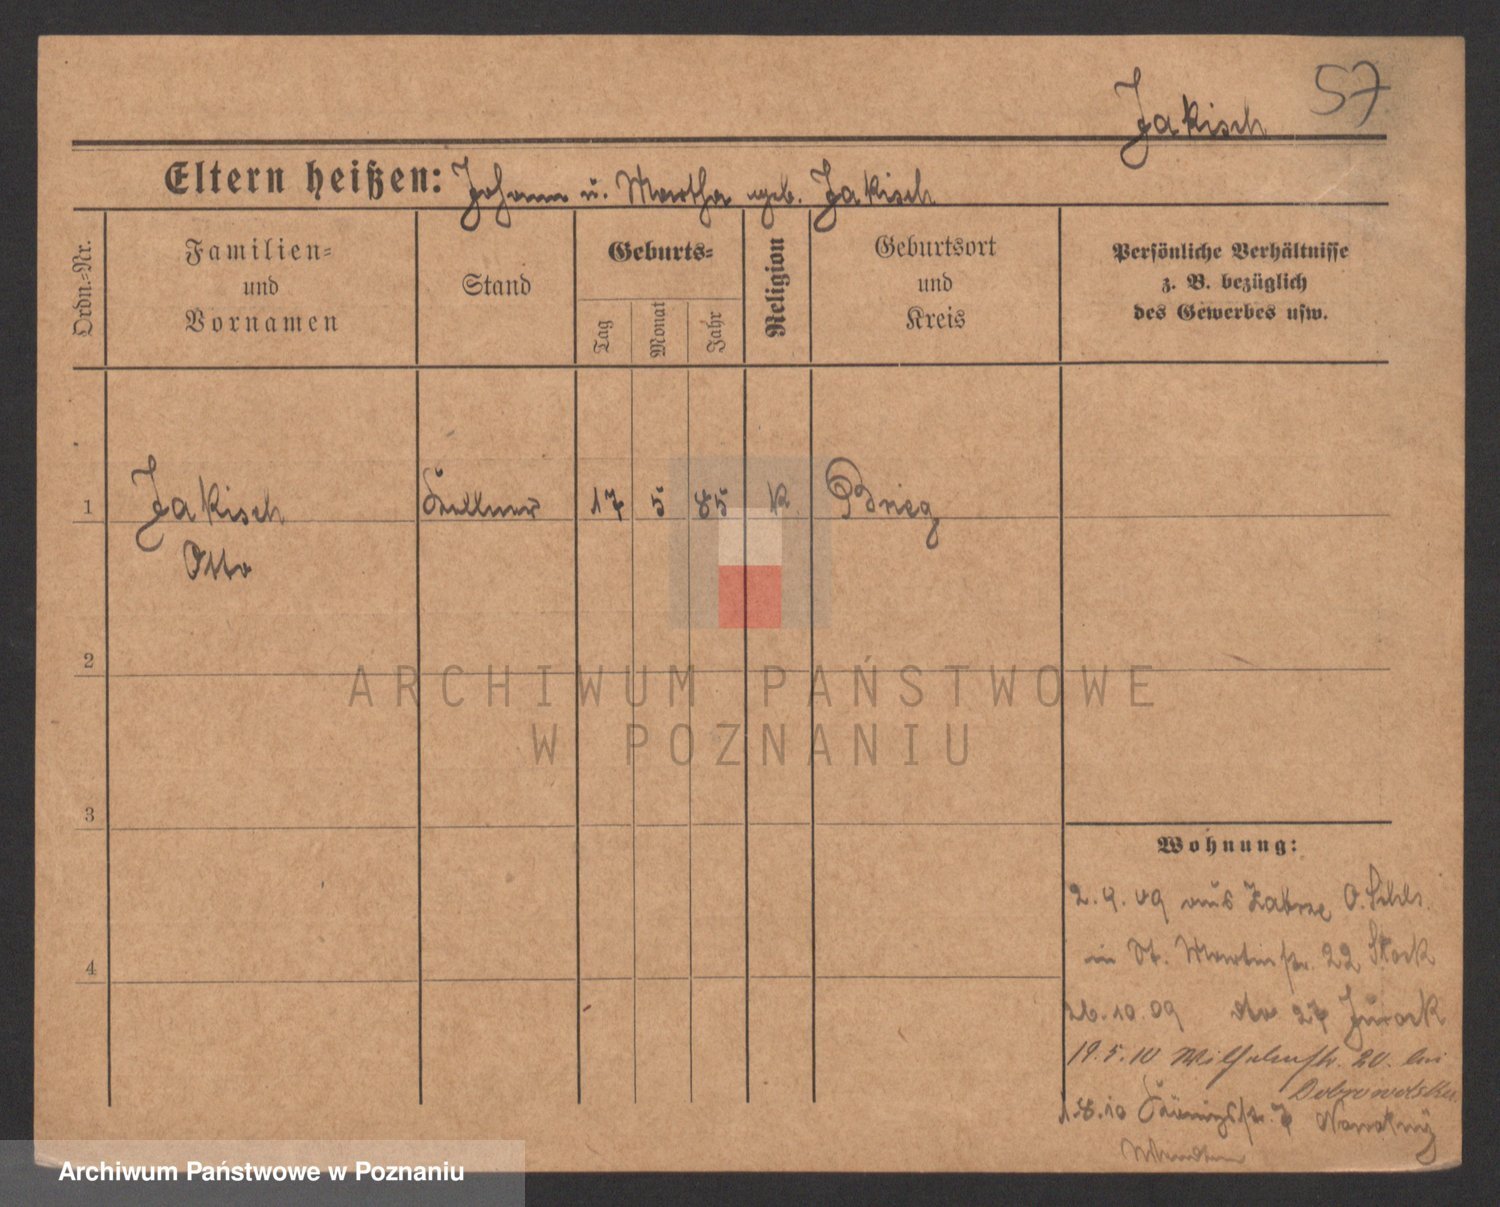 57
Jakisch
Eltern heißen: Johann u. Martha geb. Jakisch
Ordn.=Nr.
Familien=
und
Vornamen
Stand
Geburts=
Tag
Monat
Jahr
Religion
Geburtsort
und
Kreis
Persönliche Verhältnisse
z. B. bezüglich
des Gewerbes usw.
1 Jakisch Kellner 17 5 85 k Brieg
Otto
2
3
4
ARCHIWUM PAŃSTWOWE
W POZNANIU
Wohnung:
2.9.09 aus Zabrze O. Schls.
in St. Martinstr. 22 Stock
26.10.09 dto 27 Jurack
19.5.10 Wilhelmstr. 20. bei
Dobrowolski
1.8.10 Königstr. 7
Archiwum Państwowe w Poznaniu